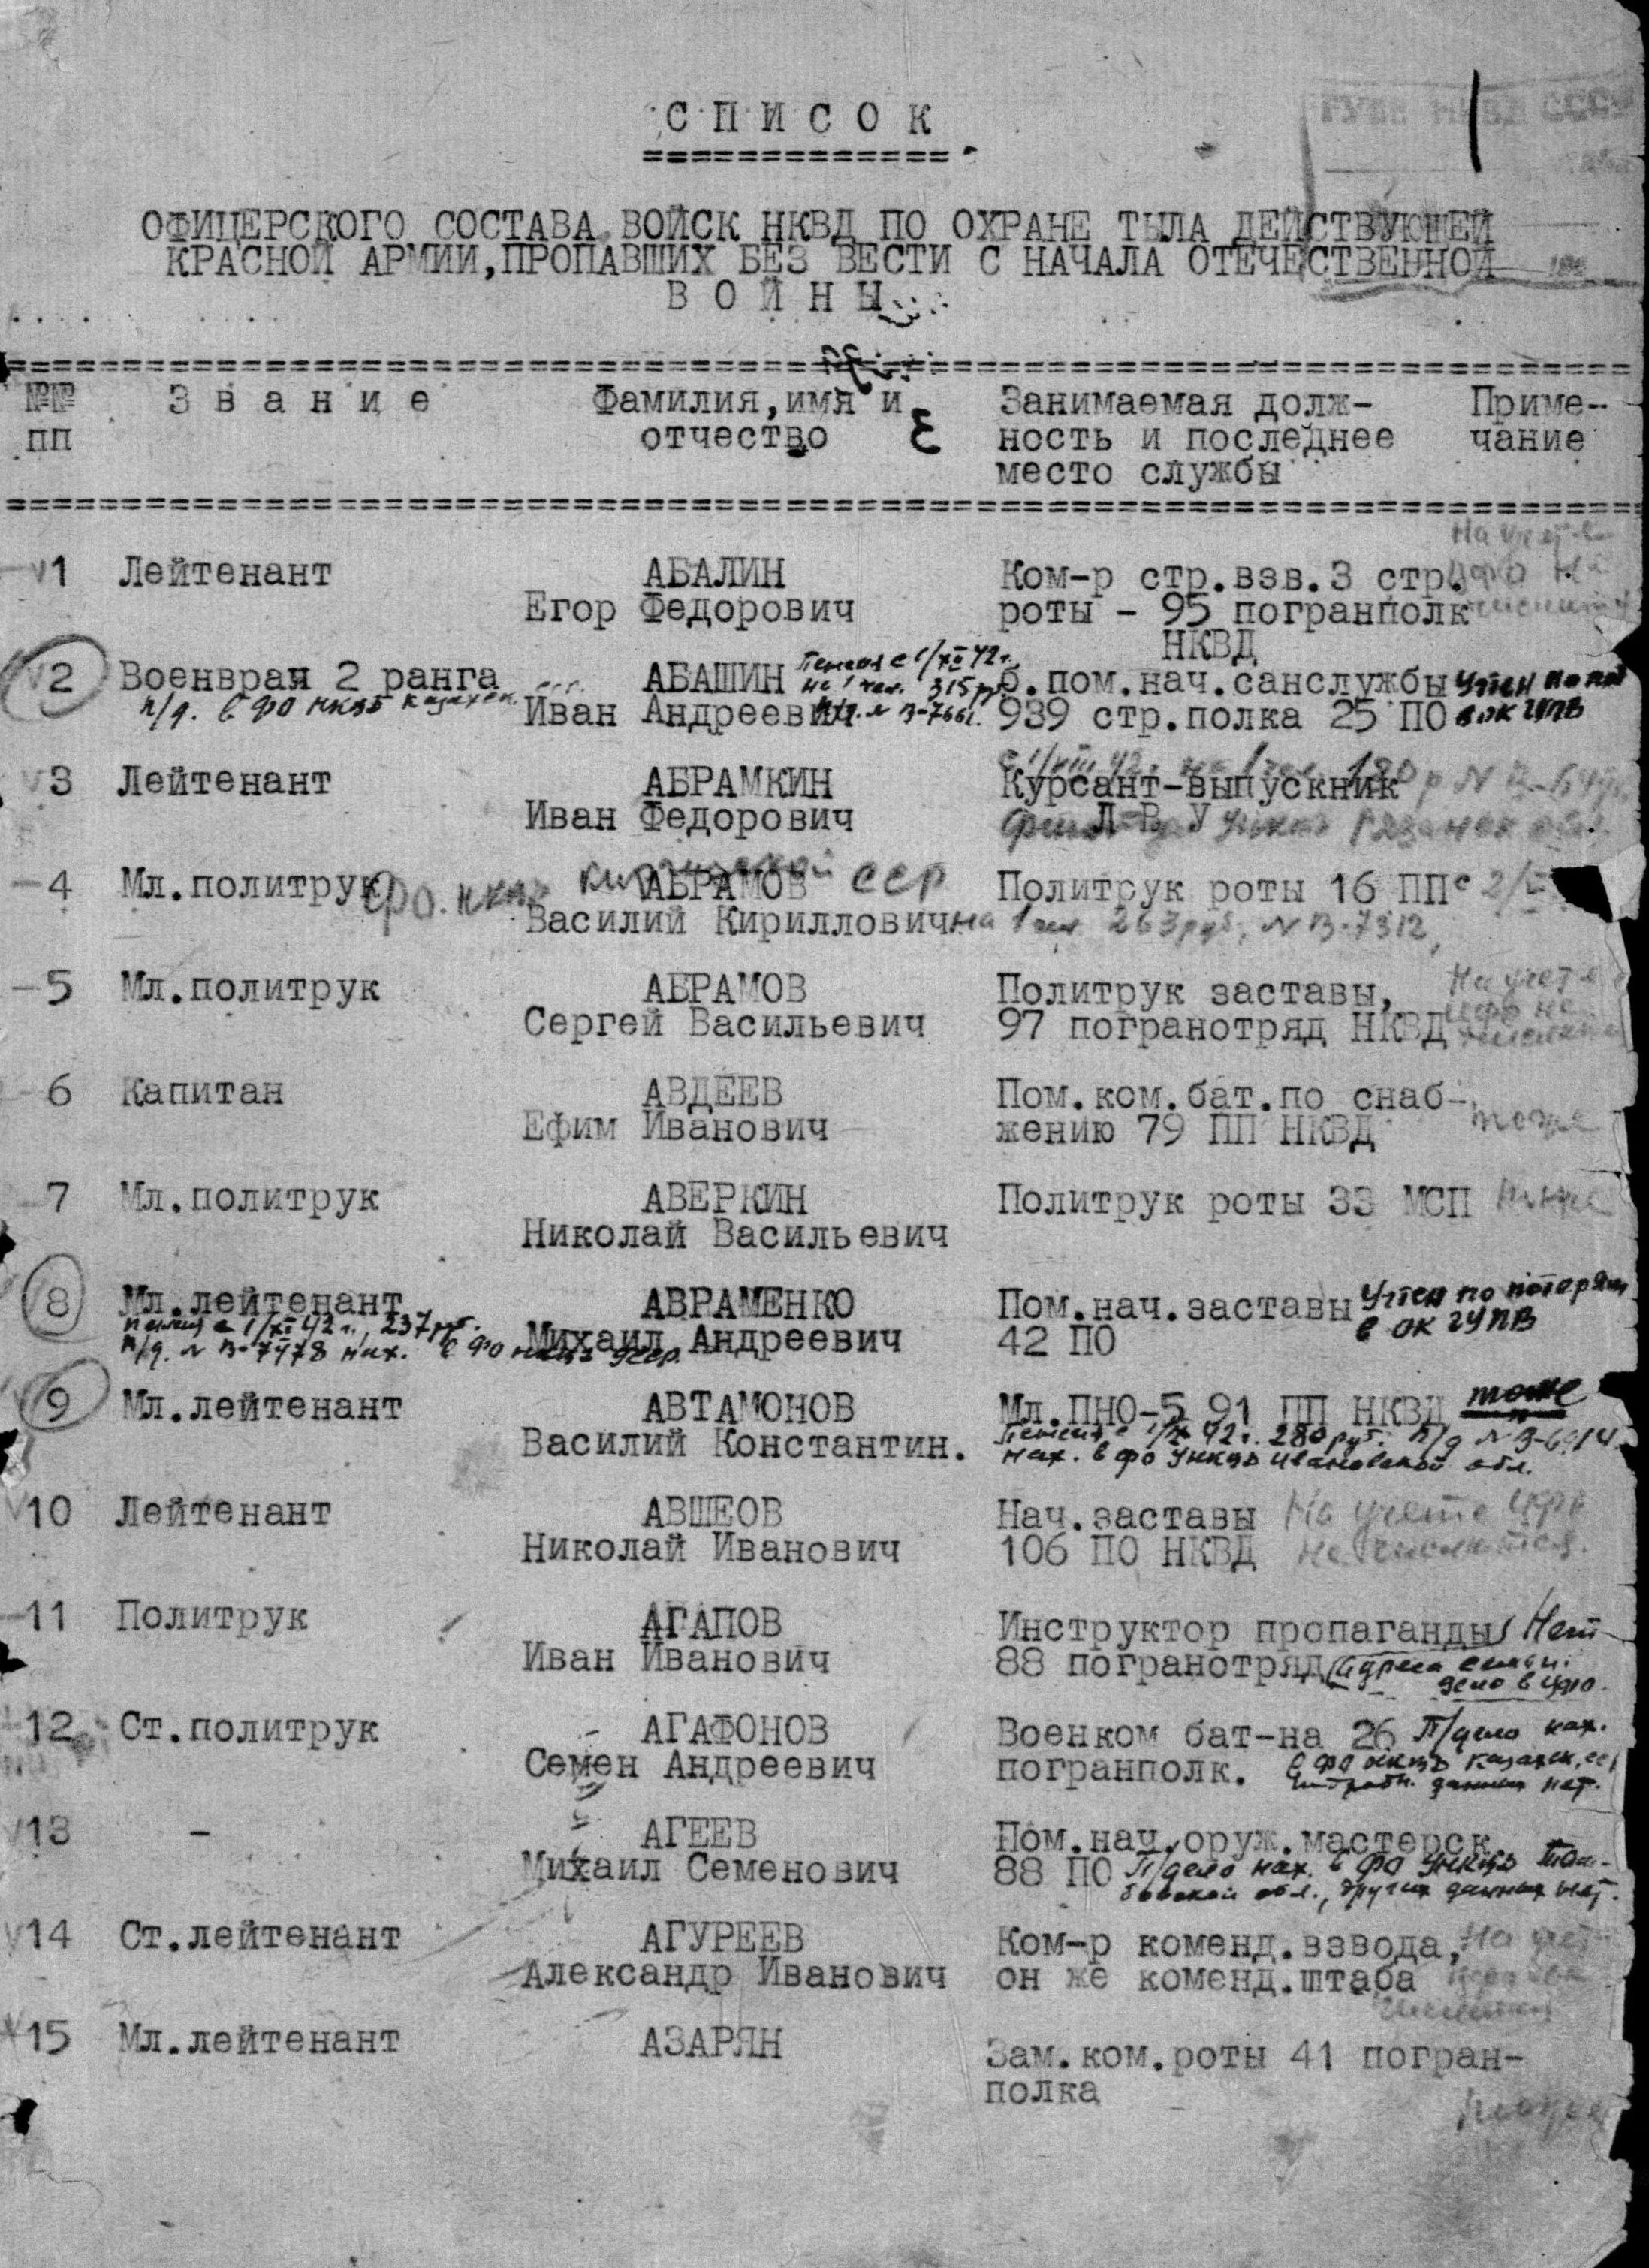 С П И С О К
ОФИЦЕРСКОГО СОСТАВА ВОЙСК НКВД ПО ОХРАНЕ ТЫЛА ДЕЙСТВУЮЩЕЙ
КРАСНОЙ АРМИИ, ПРОПАВШИХ БЕЗ ВЕСТИ С НАЧАЛА ОТЕЧЕСТВЕННОЙ
В О Й Н Ы
№№ З в а н и е Фамилия, имя и Занимаемая долж- Приме-
пп отчество ность и последнее чание
место службы
На учете
1 Лейтенант АБАЛИН Ком-р стр.взв.3 стр.
Егор Федорович роты - 95 погранполк
НКВД
Пенсия с 1/XII 42 г.
2 Военврач 2 ранга АБАШИН на 1 чел. 315 руб. б.пом.нач.санслужбы Учтен по
п/д. в ФО НКВД Казахск. Иван Андреевич № В-7661. 939 стр.полка 25 ПО в ОК ГУПВ
3 Лейтенант АБРАМКИН Курсант-выпускник
Иван Федорович Л В У
4 Мл.политрук ФО. НКВД Киргизской АБРАМОВ ССР Политрук роты 16 ПП с
Василий Кириллович на 1 чел. 263 руб, № В-7312,
5 Мл.политрук АБРАМОВ Политрук заставы, На учете
Сергей Васильевич 97 погранотряд НКВД ЦФО не числится
6 Капитан АВДЕЕВ Пом.ком.бат.по снаб-
Ефим Иванович жению 79 ПП НКВД тоже
7 Мл.политрук АВЕРКИН Политрук роты 33 МСП тоже
Николай Васильевич
8 Мл.лейтенант АВРАМЕНКО Пом.нач.заставы Учтен по потерям
пенсия с 1/XI 42 г., 237 руб. Михаил Андреевич 42 ПО в ОК ГУПВ
п/д. № В-7478 нах. в ФО НКВД УССР.
9 Мл.лейтенант АВТАМОНОВ Мл.ПНО-5 91 ПП НКВД тоже
Василий Константин. Пенсия с 42 г. 280 руб. п/д №
нах. в ФО УНКВД Ивановской обл.
10 Лейтенант АВШЕОВ Нач.заставы На учете ЦФО
Николай Иванович 106 ПО НКВД не числится.
11 Политрук АГАПОВ Инструктор пропаганды Нет
Иван Иванович 88 погранотряд адреса семьи.
дело в ЦФО.
12 Ст.политрук АГАФОНОВ Военком бат-на 26 П/дело нах.
Семен Андреевич погранполк. в ФО НКВД Казахск.
данных нет.
13 - АГЕЕВ Пом.нач.оруж.мастерск
Михаил Семенович 88 ПО П/дело нах. в ФО УНКВД Там-
бовской обл., других данных нет.
14 Ст.лейтенант АГУРЕЕВ Ком-р коменд.взвода, На учете
Александр Иванович он же коменд.штаба
числится
15 Мл.лейтенант АЗАРЯН Зам.ком.роты 41 погран-
полка
тоже